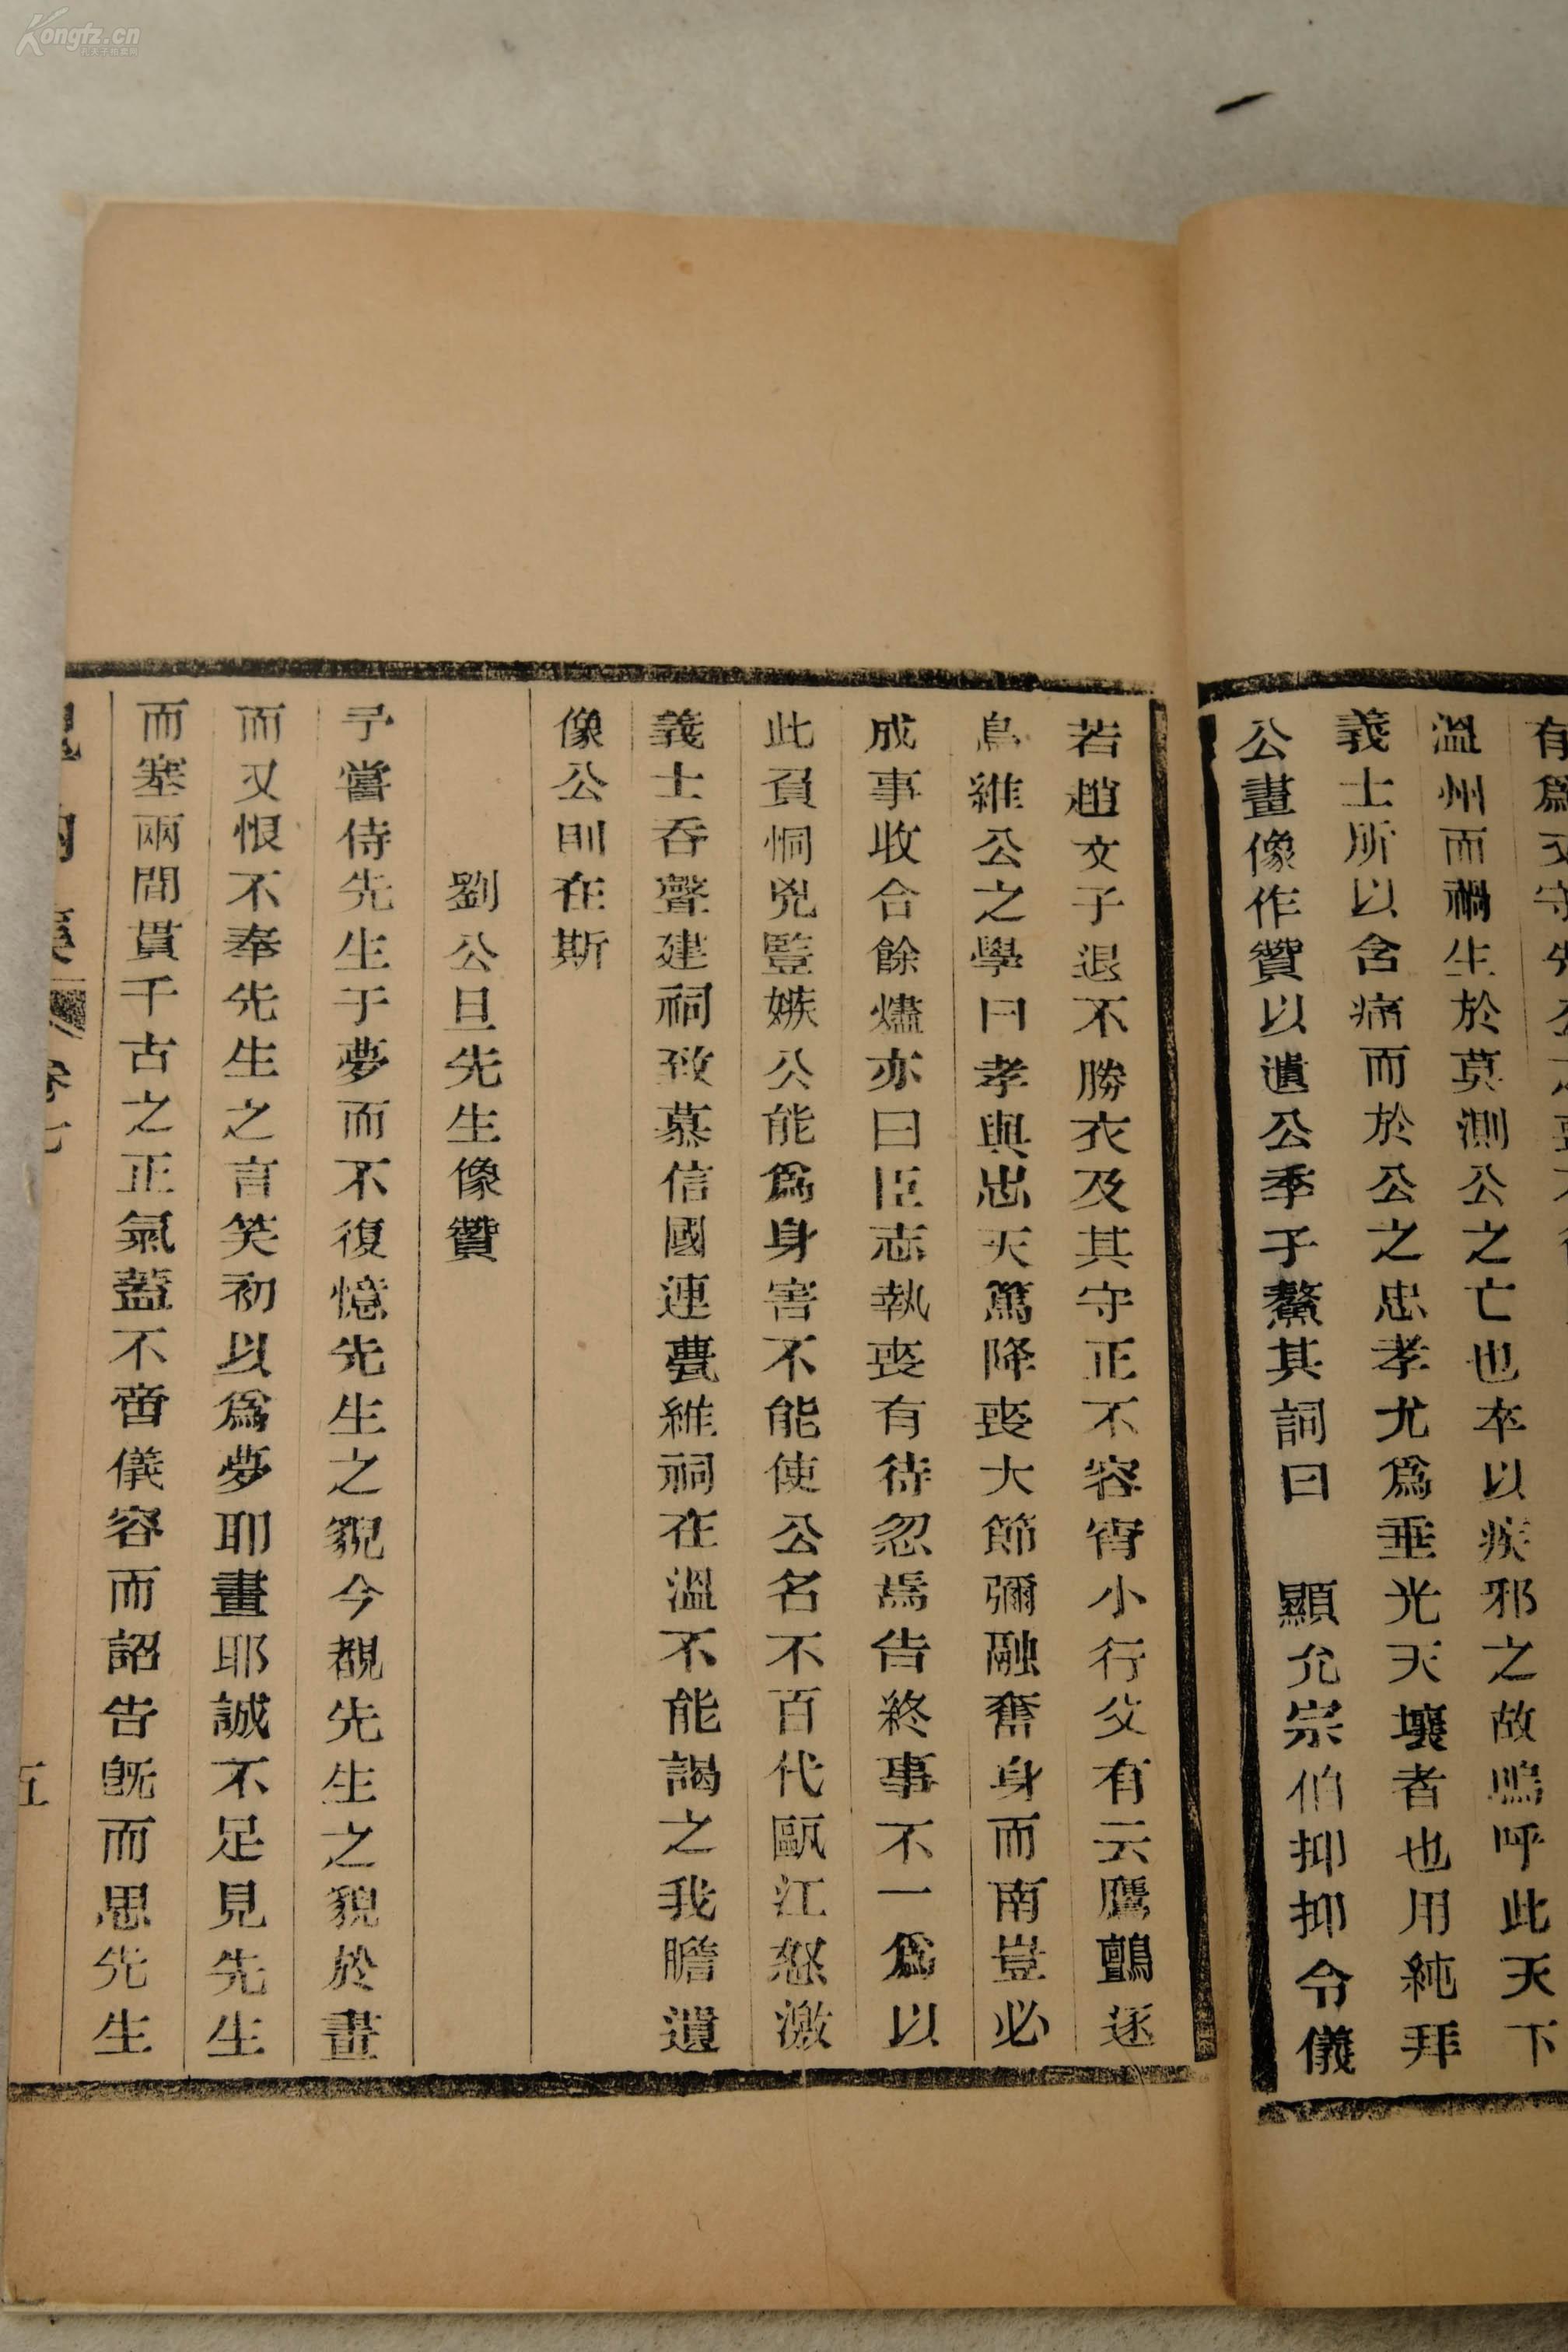 溫州而禍生於莫測公之亡也卒以疾邪之故嗚呼此天下
義士所以含痛而於公之忠孝尤爲垂光天壤者也用純拜
公畫像作贊以遺公季子鰲其詞曰　顯允宗伯抑抑令儀
若趙文子退不勝衣及其守正不容宵小行父有云鷹鸇逐
鳥維公之學曰孝與忠天篤降喪大節彌融奮身而南豈必
成事收合餘燼亦曰臣志執喪有待忽焉告終事不一爲以
此負恫兇豎嫉公能爲身害不能使公名不百代甌江怒激
義士吞聲建祠致慕信國連甍維祠在溫不能謁之我瞻遺
像公則在斯
劉公旦先生像贊
予嘗侍先生于夢而不復憶先生之貌今覩先生之貌於畫
而又恨不奉先生之言笑初以爲夢耶畫耶誠不足見先生
而塞兩間貫千古之正氣蓋不啻儀容而詔告旣而思先生
卷七
五
Kongfz.cn